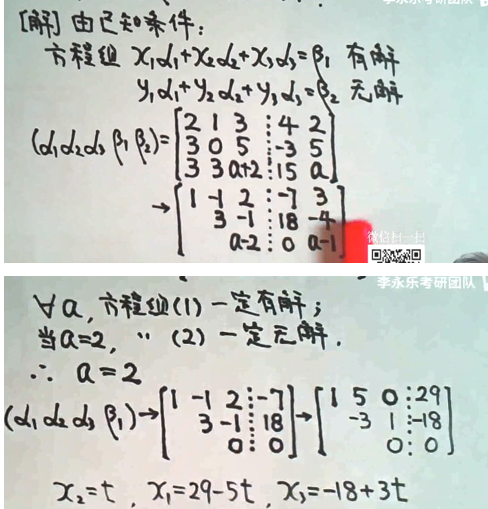 李永乐考研团队
[解] 由已知条件:
方程组 x₁α₁+x₂α₂+x₃α₃=β₁ 有解
y₁α₁+y₂α₂+y₃α₃=β₂ 无解
(α₁ α₂ α₃ β₁ β₂)=[2 1 3 ⋮ 4 2
3 0 5 ⋮ -3 5
3 3 a+2 ⋮ 15 a]
→[1 -1 2 ⋮ -7 3
3 -1 ⋮ 18 -4
a-2 ⋮ 0 a-1]
微信扫一扫
李永乐考研团队
∀a, 方程组(1)一定有解;
当a=2, 〃 (2) 一定无解.
∴ a=2
(α₁ α₂ α₃ β₁)→[1 -1 2 ⋮ -7 →[1 5 0 ⋮ 29
3 -1 ⋮ 18 -3 1 ⋮ -18
0 ⋮ 0] 0 ⋮ 0]
x₂=t, x₁=29-5t, x₃=-18+3t